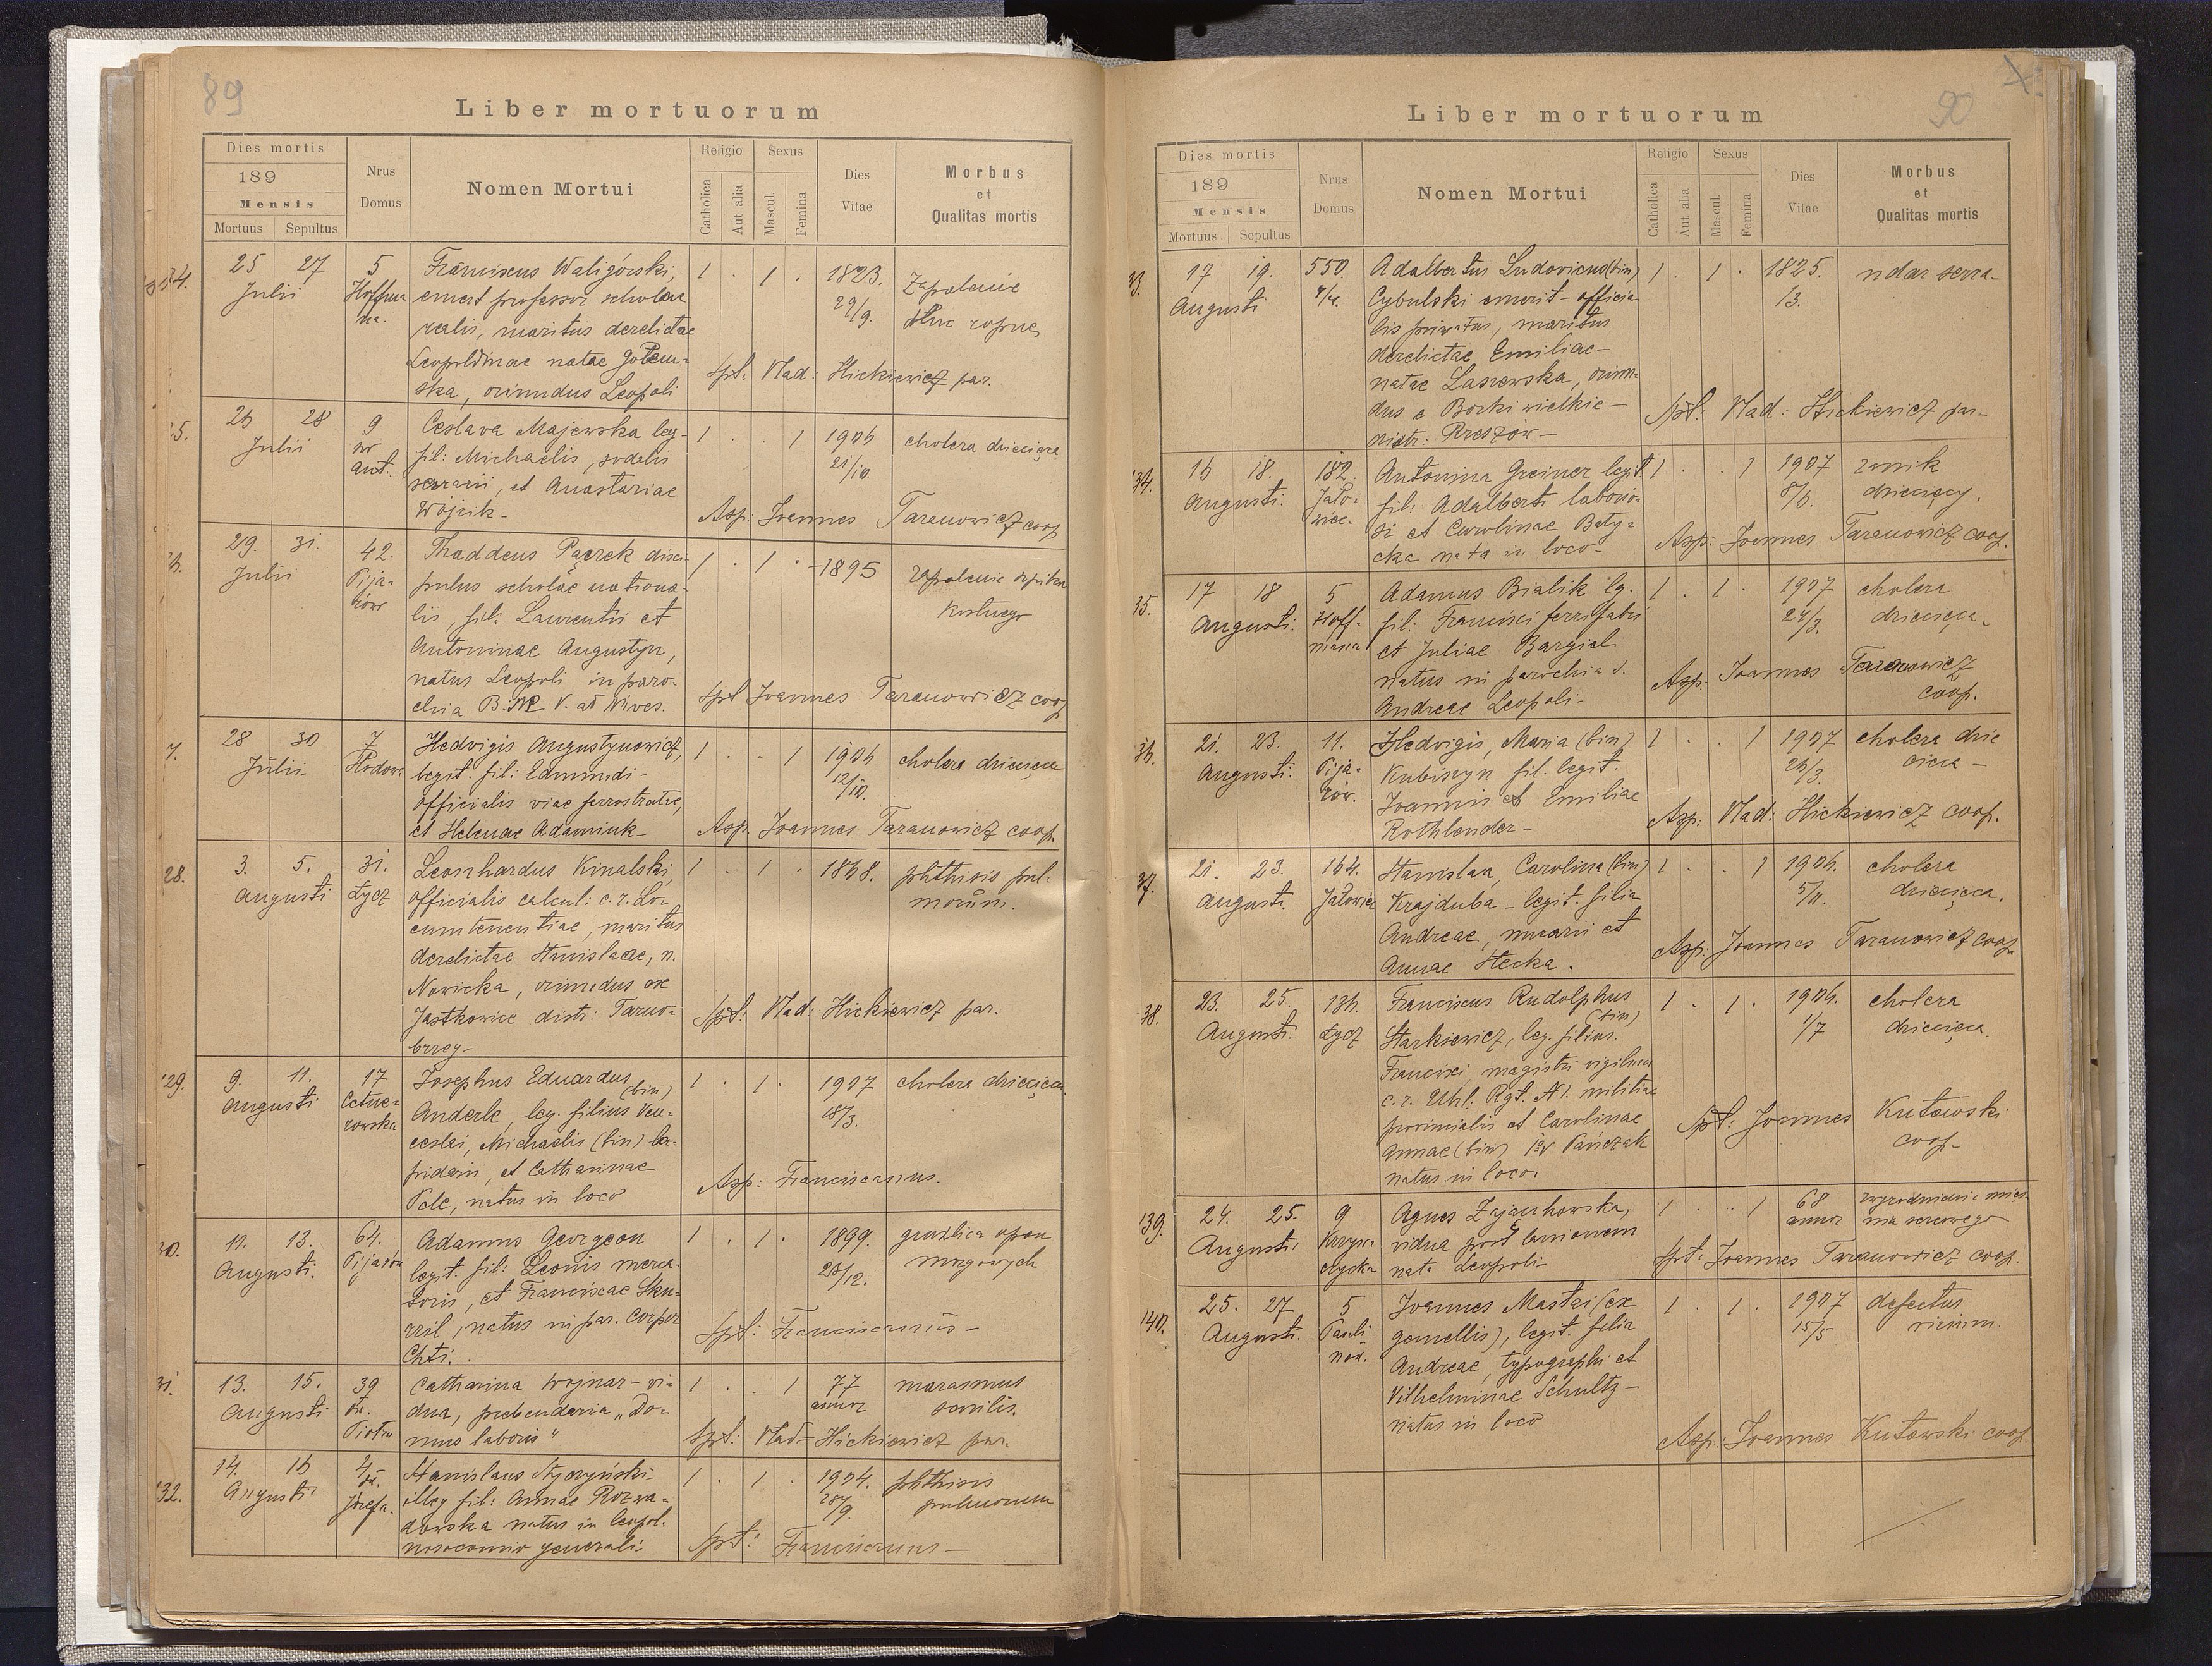 89
Liber mortuorum
Dies mortis
189
Mensis
Mortuus Sepultus
Nrus
Domus
Nomen Mortui
Religio
Catholica
Aut alia
Sexus
Mascul.
Femina
Dies
Vitae
Morbus
et
Qualitas mortis
25 27 5 Franciscus Waligórski, 1 . 1 . 1823. Zapalenie
Julii Hoffma emerit professor scholae 29/9. płuc ropne
na. realis, maritus derelictae
Leopoldinae natae Golem- Spt: Vlad: Hickiewicz par.
ska, oriundus Leopoli
26 28 9 Ceslava Majewska leg. 1 . . 1 1906 cholera dziecięca
Julii św fil: Michaelis, sodalis 21/10.
ant. serrarii, et Anastasiae
Wójcik- Asp: Joannes Taranowicz coop
29. 31. 42. Thaddeus Pączek disci- 1 . 1 . 1895 Zapalenie szpiku
Julii Pija- pulus scholae nationa- kostnego
rów lis, fil: Laurentii et
Antoninae Augustyn,
natus Leopoli in paro- Spt Joannes Taranowicz coop
chia B.M. V. ad Nives.
7. 28 30 7 Hedvigis Augustynowicz, 1 . . 1 1906 cholera dziecięca
Julii legit. fil: Edmundi- 12/10.
officialis viae ferrostratae,
et Helenae Adamiuk- Asp. Joannes Taranowicz coop.
28. 3. 5. 31. Leonhardus Kinalski, 1 . 1 . 1868. phthisis pul-
Augusti Łycz officialis calcul: c. r. Lo- monum.
cumtenentiae, maritus
derelictae Stanislaae, n.
Nowicka, oriundus ex
Jastkowice distr: Tarno- Spt: Vlad: Hickiewicz par.
brzeg-
29. 9. 11. 17 Josephus Eduardus (bin) 1 . 1 . 1907 cholera dziecięca
Augusti Cetne- Anderle, leg. filius Ven- 18/3.
rowska ceslai, Michaelis (bin) la-
pidarii, et Catharinae Asp: Franciscanus.
Pele, natus in loco
30. 11. 13. 64. Adamus Georgeon 1 . 1 . 1899. gruźlica opon
Augusti. Pijarów legit. fil: Leonis merca- 23/12. mózgowych
toris, et Franciscae Sku-
natus in par. Corpor Spt: Franciscanus-
Chti.
31. 13. 15. 39 Catharina Wojnar- vi- 1 . . 1 77 marasmus
Augusti św. dua, prebendaria „Do- annor senilis.
Piotra mus laboris" Spt: Vlad- Hickiewicz par.
132. 14. 16 4 Stanislaus 1 . 1 . 1904. phthisis
Augusti św. illeg fil: Annae Rozwa- /9. pulmonum
Józefa. dowska natus in Leopol.
nosocomio generali Spt: Franciscanus-
90
Liber mortuorum
Dies mortis
189
Mensis
Mortuus Sepultus
Nrus
Domus
Nomen Mortui
Religio
Catholica
Aut alia
Sexus
Mascul.
Femina
Dies
Vitae
Morbus
et
Qualitas mortis
33. 17 19. 550. Adalbertus Ludovicus (bin) 1 . 1 . 1825. udar serca-
Augusti Cybulski emerit- officia- 13.
lis privatus, maritus
derelictae Emiliae-
natae Laszewska, oriun-
dus e Borki wielkie- Spt: Vlad: Hickiewicz par-
distr: Rzeszów-
34. 16 18. 182. Antonina Greiner legit 1 . . 1 1907 zanik
Augusti. Jało- fil: Adalberti laborio- 8/6. dziecięcy.
wiec. si et Carolinae Baty-
cka nata in loco- Asp: Joannes Taranowicz coop.
35. 17 18 5 Adamus Bialik lg. 1 . 1 . 1907 cholera
Augusti. Hoff- fil: Francisci ferrifabri 24/3. dziecięca.
mana et Juliae Bargiel
natus in parochia S. Asp: Joannes Taranowicz
Andreae Leopoli- coop.
36. 21. 23. 11. Hedvigis, Maria (bin) 1 . . 1 1907 cholera dzie
Augusti. Pija- Kubiszyn fil. legit. 26/3. cięca-
rów. Joannis et Emiliae
Rothlender- Asp: Vlad: Hickiewicz coop.
37. 21. 23. 164. Stanislaa, Carolina (bin) 1 . . 1 1906. cholera
Augusti. Jałowiec Krajduba- legit. filia 5/11. dziecięca.
Andreae, murarii et
Annae Stecka. Asp: Joannes Taranowicz coop.
38. 23. 25. 136. Franciscus Rudolphus (bin) 1 . 1 . 1906. cholera
Augusti. Łycz Starkiewicz, leg. filius. 1/7 dziecięca.
Francisci magistri vigilum
c. r. Uhl. Rgt. N1. militiae
provincialis et Carolinae Spt: Joannes Kutowski
Annae (bin) Pańczak coop-
natus in loco.
139. 24. 25. 9 Agnes Zajączkowska, 1 . . 1 68 zwyrodnienie mięś-
Augusti. Krzyw- vidua post nia sercowego
czycka nata Leopoli- annor Spt: Joannes Taranowicz coop.
140. 25. 27 5 Joannes Mastai (ex 1 . 1 . 1907 defectus
Augusti. Pauli gemellis), legit. filia 15/5 virium.
nów. Andreae, typographi et
Vilhelminae Schultz-
natus in loco
Asp: Joannes Kutowski coop.